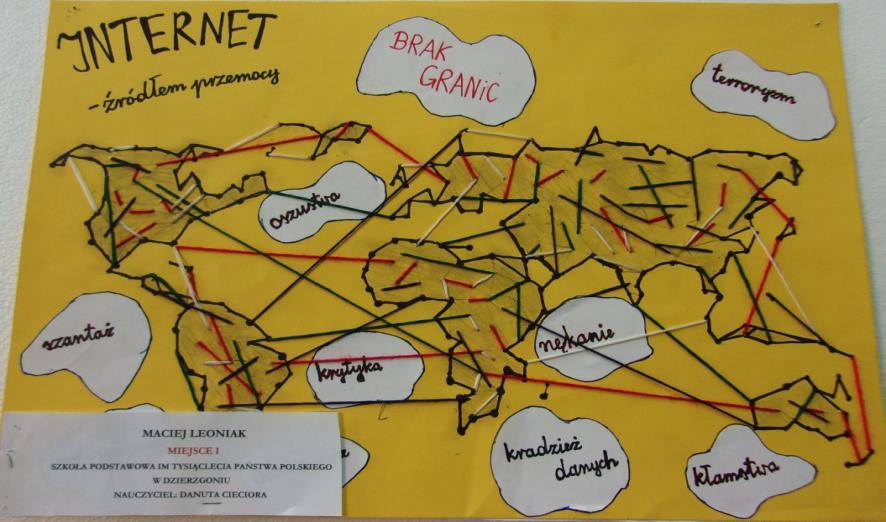 INTERNET
- źródłem przemocy
BRAK
GRANIC
terroryzm
oszustwa
szantaż
krytyka
nękanie
kradzież
danych
kłamstwa
MACIEJ LEONIAK
MIEJSCE I
SZKOŁA PODSTAWOWA IM TYSIĄCLECIA PAŃSTWA POLSKIEGO
W DZIERZGONIU
NAUCZYCIEL: DANUTA CIECIORA